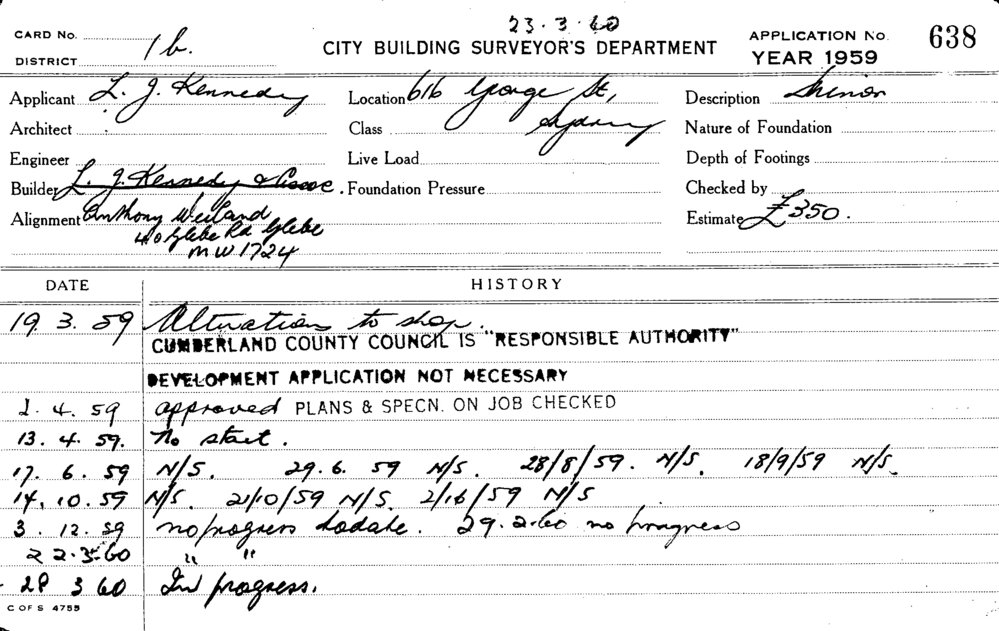 23.3.60
CARD No.
DISTRICT 1b.
CITY BUILDING SURVEYOR'S DEPARTMENT
APPLICATION No. 638
YEAR 1959
Applicant L. J. Kennedy Location 616 George St, Description Minor
Architect Class Sydney Nature of Foundation
Engineer Live Load Depth of Footings
Builder L. J. Kennedy & Assoc. Foundation Pressure Checked by
Alignment Anthony Weiland Estimate £350.
40 Glebe Rd Glebe
MW1724
DATE HISTORY
19. 3. 59 Alterations to shop.
CUMBERLAND COUNTY COUNCIL IS "RESPONSIBLE AUTHORITY"
DEVELOPMENT APPLICATION NOT NECESSARY
2. 4. 59 approved PLANS & SPECN. ON JOB CHECKED
13. 4. 59. No start.
17. 6. 59 N/S. 29. 6. 59 N/S. 28/8/59. N/S. 18/9/59 N/S.
14. 10. 59 N/S. 21/10/59 N/S. N/S
3. 12. 59 no progress to date. 29.2.60 no progress
22.3.60 " "
28 3 60 In progress.
C OF S 4755